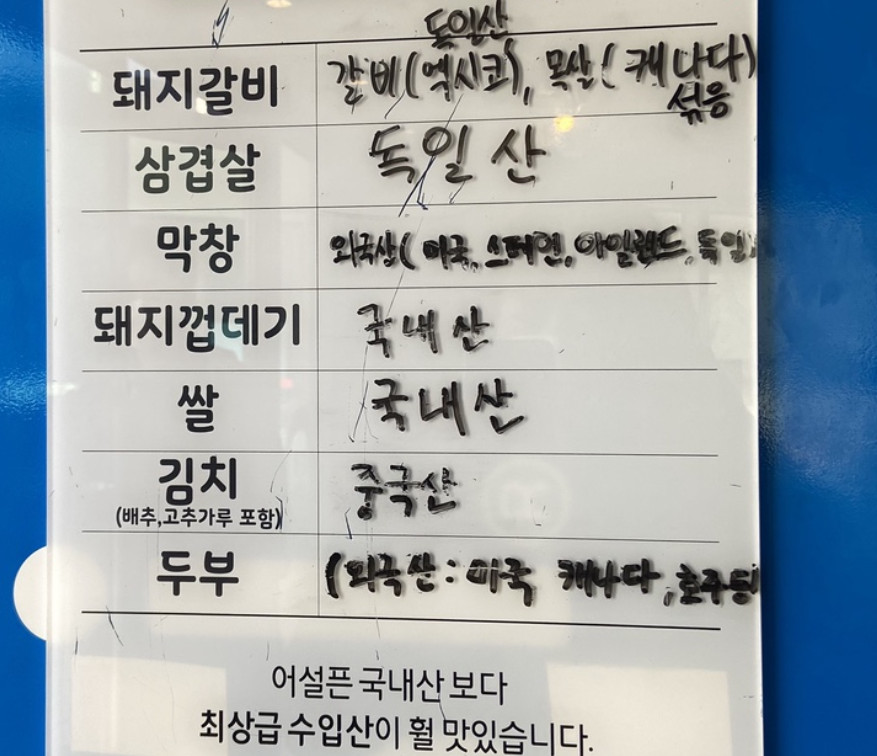 독일산
돼지갈비 갈비(멕시코), 목살(캐나다)
섞음
삼겹살 독일산
막창 외국산(미국, 스페인, 아일랜드, 독일)
돼지껍데기 국내산
쌀 국내산
김치 중국산
(배추,고추가루 포함)
두부 (외국산: 미국 캐나다, 호주등
어설픈 국내산 보다
최상급 수입산이 훨 맛있습니다.